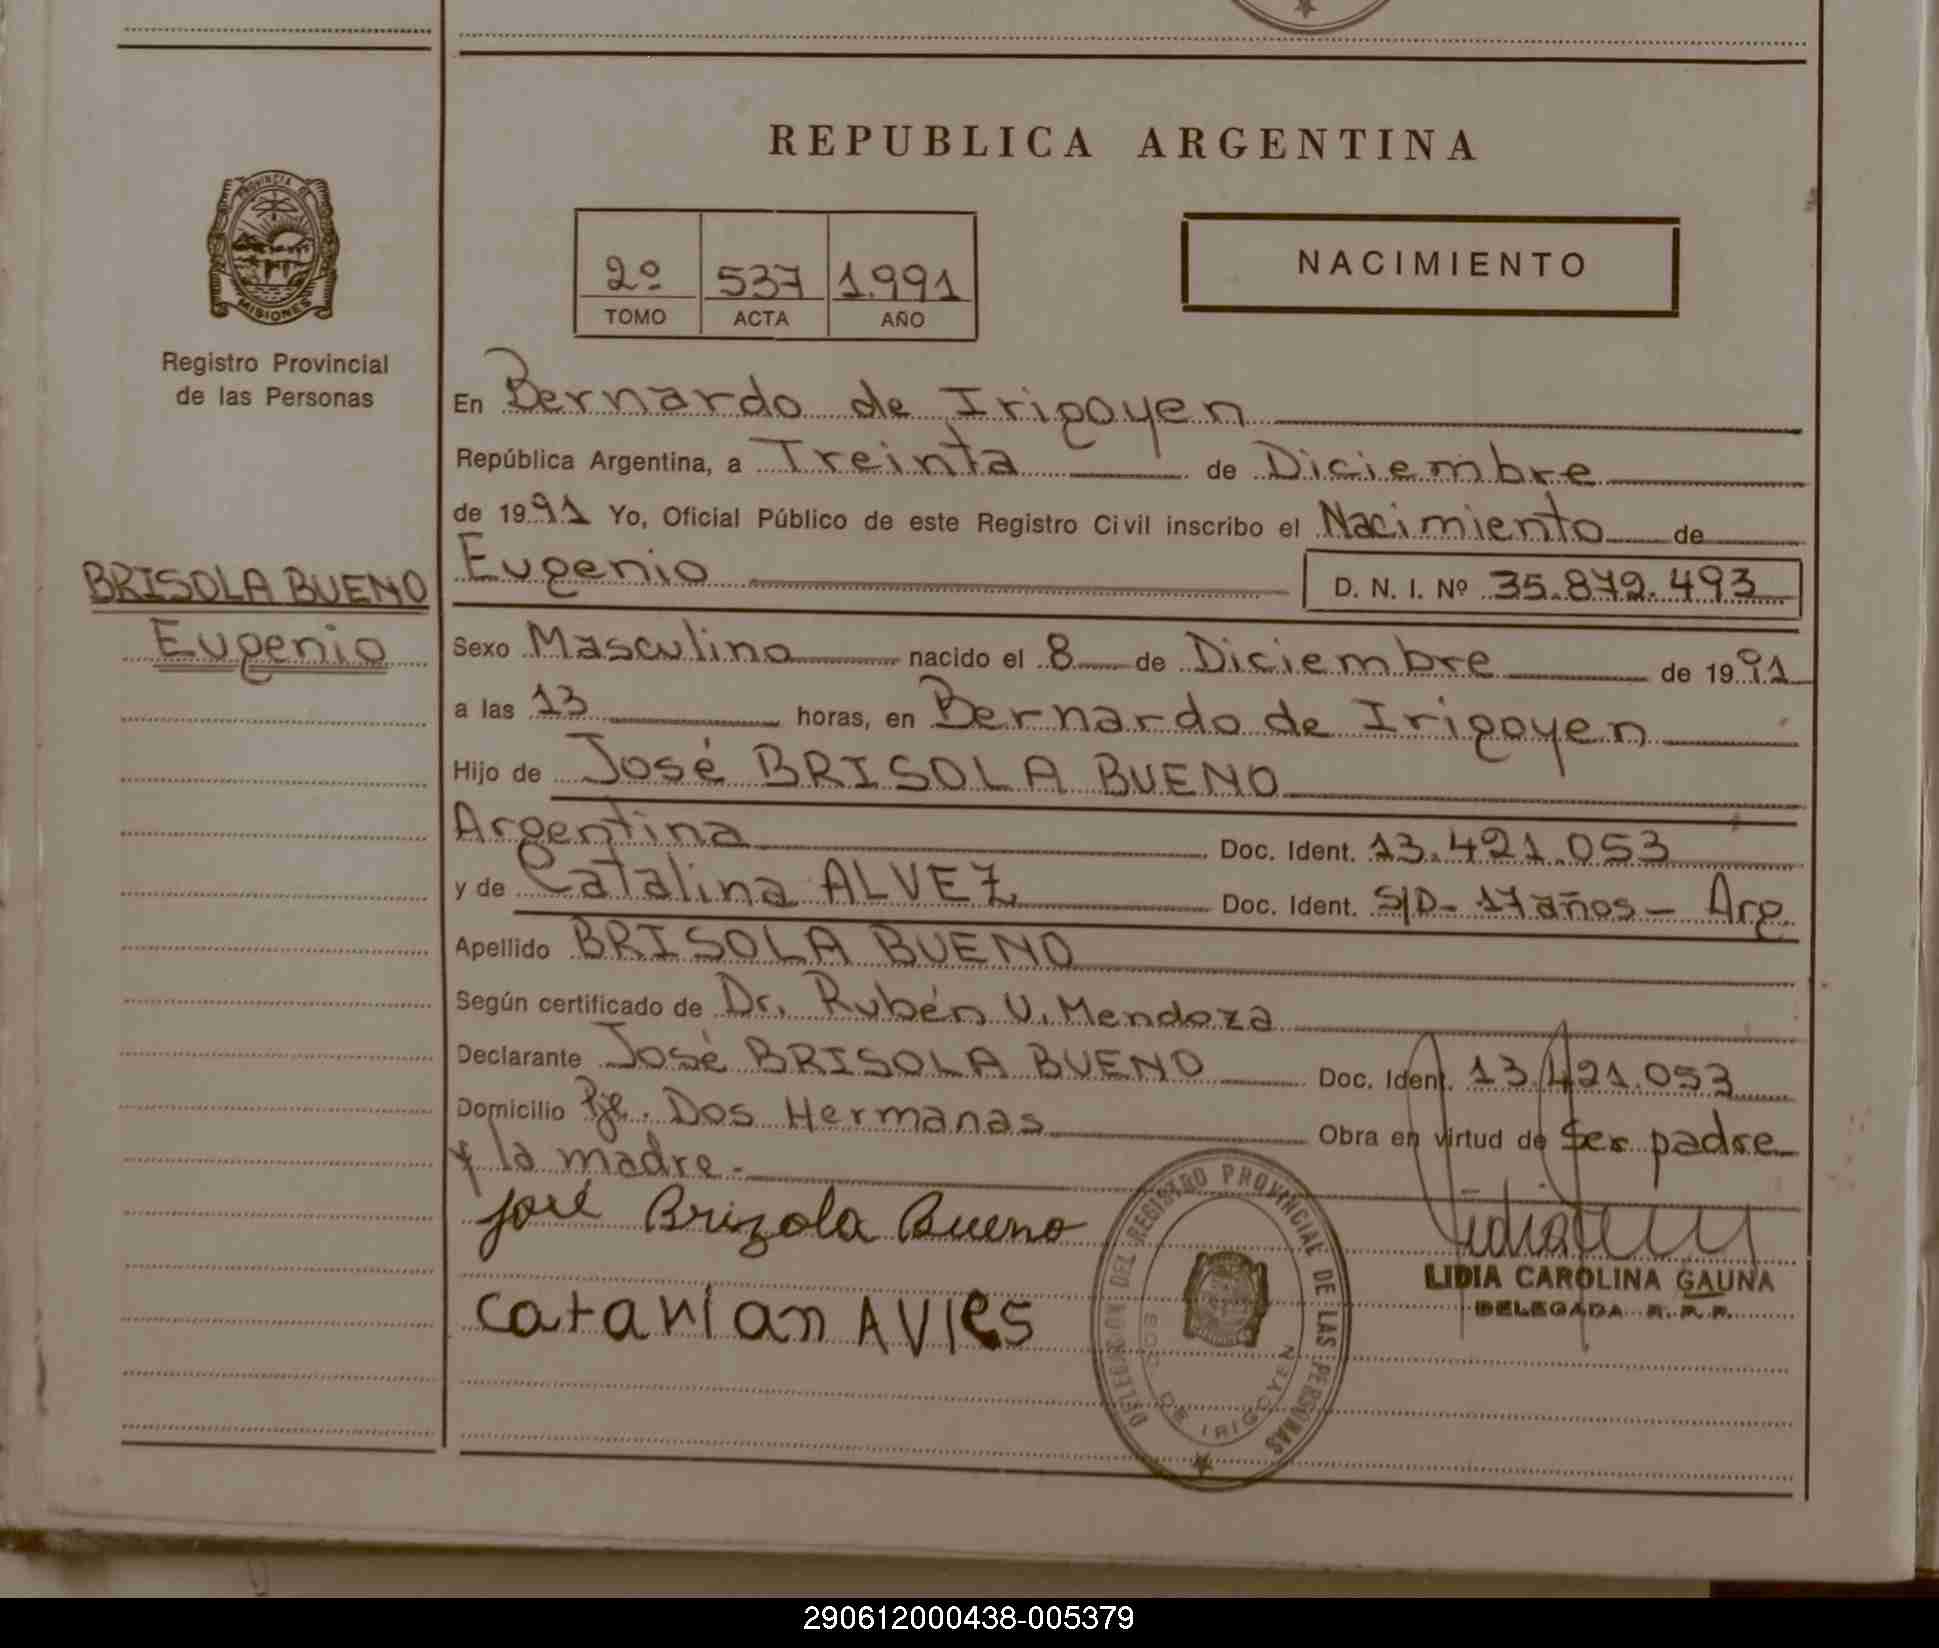 REPUBLICA ARGENTINA
PROVINCIA DE
MISIONES
Registro Provincial
de las Personas
2º 537 1.991
TOMO ACTA AÑO
NACIMIENTO
En Bernardo de Irigoyen
República Argentina, a Treinta de Diciembre
de 1991 Yo, Oficial Público de este Registro Civil inscribo el Nacimiento de
BRISOLA BUENO
Eugenio
Eugenio D. N. I. Nº 35.872.493
Sexo Masculino nacido el 8 de Diciembre de 1991
a las 13 horas, en Bernardo de Irigoyen
Hijo de José BRISOLA BUENO
Argentina Doc. Ident. 13.421.053
y de Catalina ALVEZ Doc. Ident. S/D- 17 años - Arg.
Apellido BRISOLA BUENO
Según certificado de Dr. Rubén V. Mendoza
Declarante José BRISOLA BUENO Doc. Ident. 13.421.053
Domicilio Pje. Dos Hermanas Obra en virtud de Ser padre
y la madre.-
José Brizola Bueno
catanlan AVles
DELEGACION DEL REGISTRO PROVINCIAL DE LAS PERSONAS
BDO. DE IRIGOYEN
LIDIA CAROLINA GAUNA
DELEGADA R. P. P.
290612000438-005379